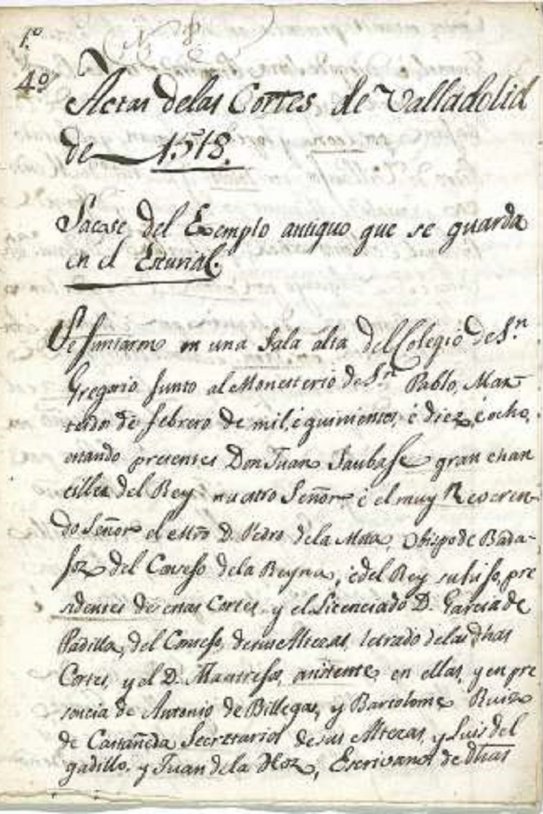 1.º
4.º
Actas delas Cortes de Valladolid
de 1518.
Sacase del Exemplo antiguo que se guarda
en el Escurial.
Se juntaron en una Sala alta del Colegio de S.n
Gregorio junto al Monesterio de S.n Pablo, Mar
de febrero de mil, e quinientos, e diez, e ocho,
estando presentes Don Juan Saubaje gran chan
ciller del Rey nuestro Señor e el muy Reveren-
do Señor el D. Pedro dela Mota, Obispo de Bada-
joz del Consejo dela Reyna, e del Rey su hijo, pre
sidentes de estas Cortes y el Licenciado D. Garcia de
Padilla, del Consejo de sus Altezas, letrado delas dhas
Cortes, y el D. asistente en ellas, y en pre
sencia de Antonio de Billegas, y Bartolome Ruiz
de Castañeda Secretarios de sus Altezas, y Luis del
gadillo, y Juan dela Hoz, Escrivanos de dhas